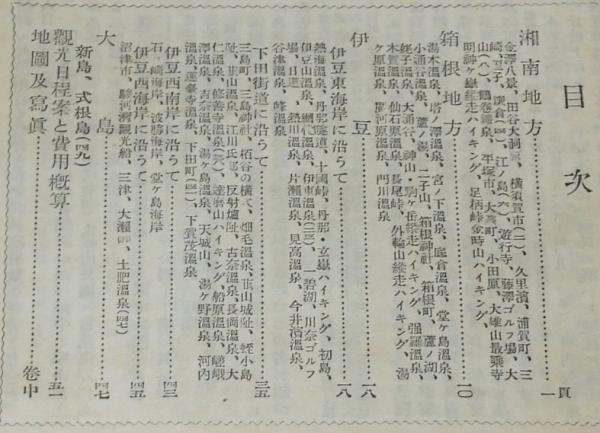 目次
頁
湘南地方…………一
金澤八景、田谷大洞窟、横須賀市(二)、久里濱、浦賀町、三
崎、逗子、鎌倉(四)、江ノ島(六)、遊行寺、藤澤ゴルフ場、大
山(八)、鶴巻鑛泉、平塚市、大磯町、小田原、大雄山最乘寺
明神ヶ嶽縱走ハイキング、足柄峠金時山ハイキング、
箱根地方…………一〇
湯本溫泉、塔ノ澤溫泉、宮ノ下溫泉、底倉溫泉、堂ヶ島溫泉、
小涌谷溫泉、蘆ノ湯、二子山、箱根神社、箱根町、蘆ノ湖、
姥子溫泉、大涌谷、神山・駒ヶ岳縱走ハイキング、强羅溫泉、
木賀溫泉、仙石原溫泉、長尾峠、外輪山縱走ハイキング、湯
ヶ原溫泉、廣河原溫泉、門川溫泉
伊豆…………一八
伊豆東海岸に沿うて…………一八
熱海溫泉、丹那隧道、十國峠、丹那・玄嶽ハイキング、初島、
伊豆山溫泉、網代溫泉、伊東溫泉(三三)、一碧湖、川奈ゴルフ
場、日蓮、熱川溫泉、片瀨溫泉、見高溫泉、今井濱溫泉、
谷津溫泉、峰溫泉
下田街道に沿うて…………三五
三島町、三島神社、栢谷の横穴、畑毛溫泉、韮山城趾、蛭小島
趾、韮山溫泉、江川氏邸、反射爐趾、古奈溫泉、長岡溫泉、大
仁溫泉、修善寺溫泉(三八)、達磨山ハイキング、船原溫泉、嵯峨
澤溫泉、吉奈溫泉、湯ヶ島溫泉、天城山、湯ヶ野溫泉、河内
溫泉、蓮臺寺溫泉、下田町(四一)、下賀茂溫泉
伊豆西南岸に沿うて…………四三
石ヶ崎海岸、波勝海岸、堂ヶ島海岸
伊豆西海岸に沿うて…………四五
沼津市、駿河灣觀光船、三津、大瀨岬、土肥溫泉(四七)
大島…………四七
新島、式根島(四九)
觀光日程案と費用概算…………五一
地圖及寫眞…………卷中